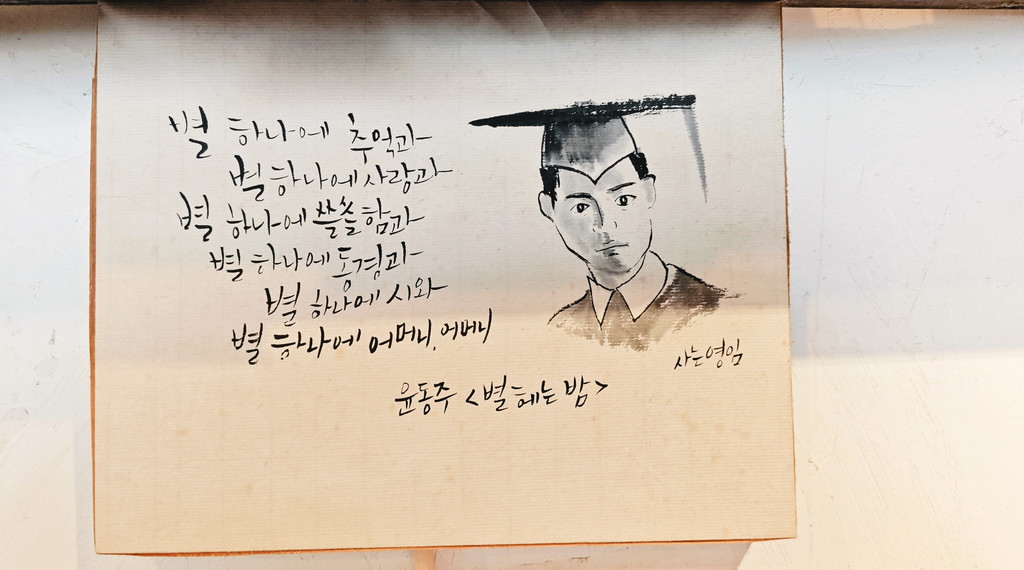 별 하나에 추억과
별 하나에 사랑과
별 하나에 쓸쓸함과
별 하나에 동경과
별 하나에 시와
별 하나에 어머니, 어머니
사는영임
윤동주 <별 헤는 밤>